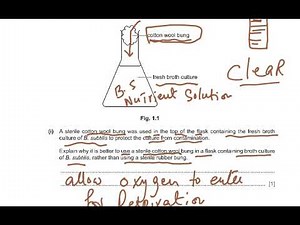 cotton wool bung
fresh broth culture
B. S
Nutrient Solution
CleaR
Fig. 1.1
(i) A sterile cotton wool bung was used in the top of the flask containing the fresh broth
culture of B. subtilis to protect the culture from contamination.
Explain why it is better to use a sterile cotton wool bung in a flask containing broth culture
of B. subtilis, rather than using a sterile rubber bung.
allow oxygen to enter
for Respiration
[1]